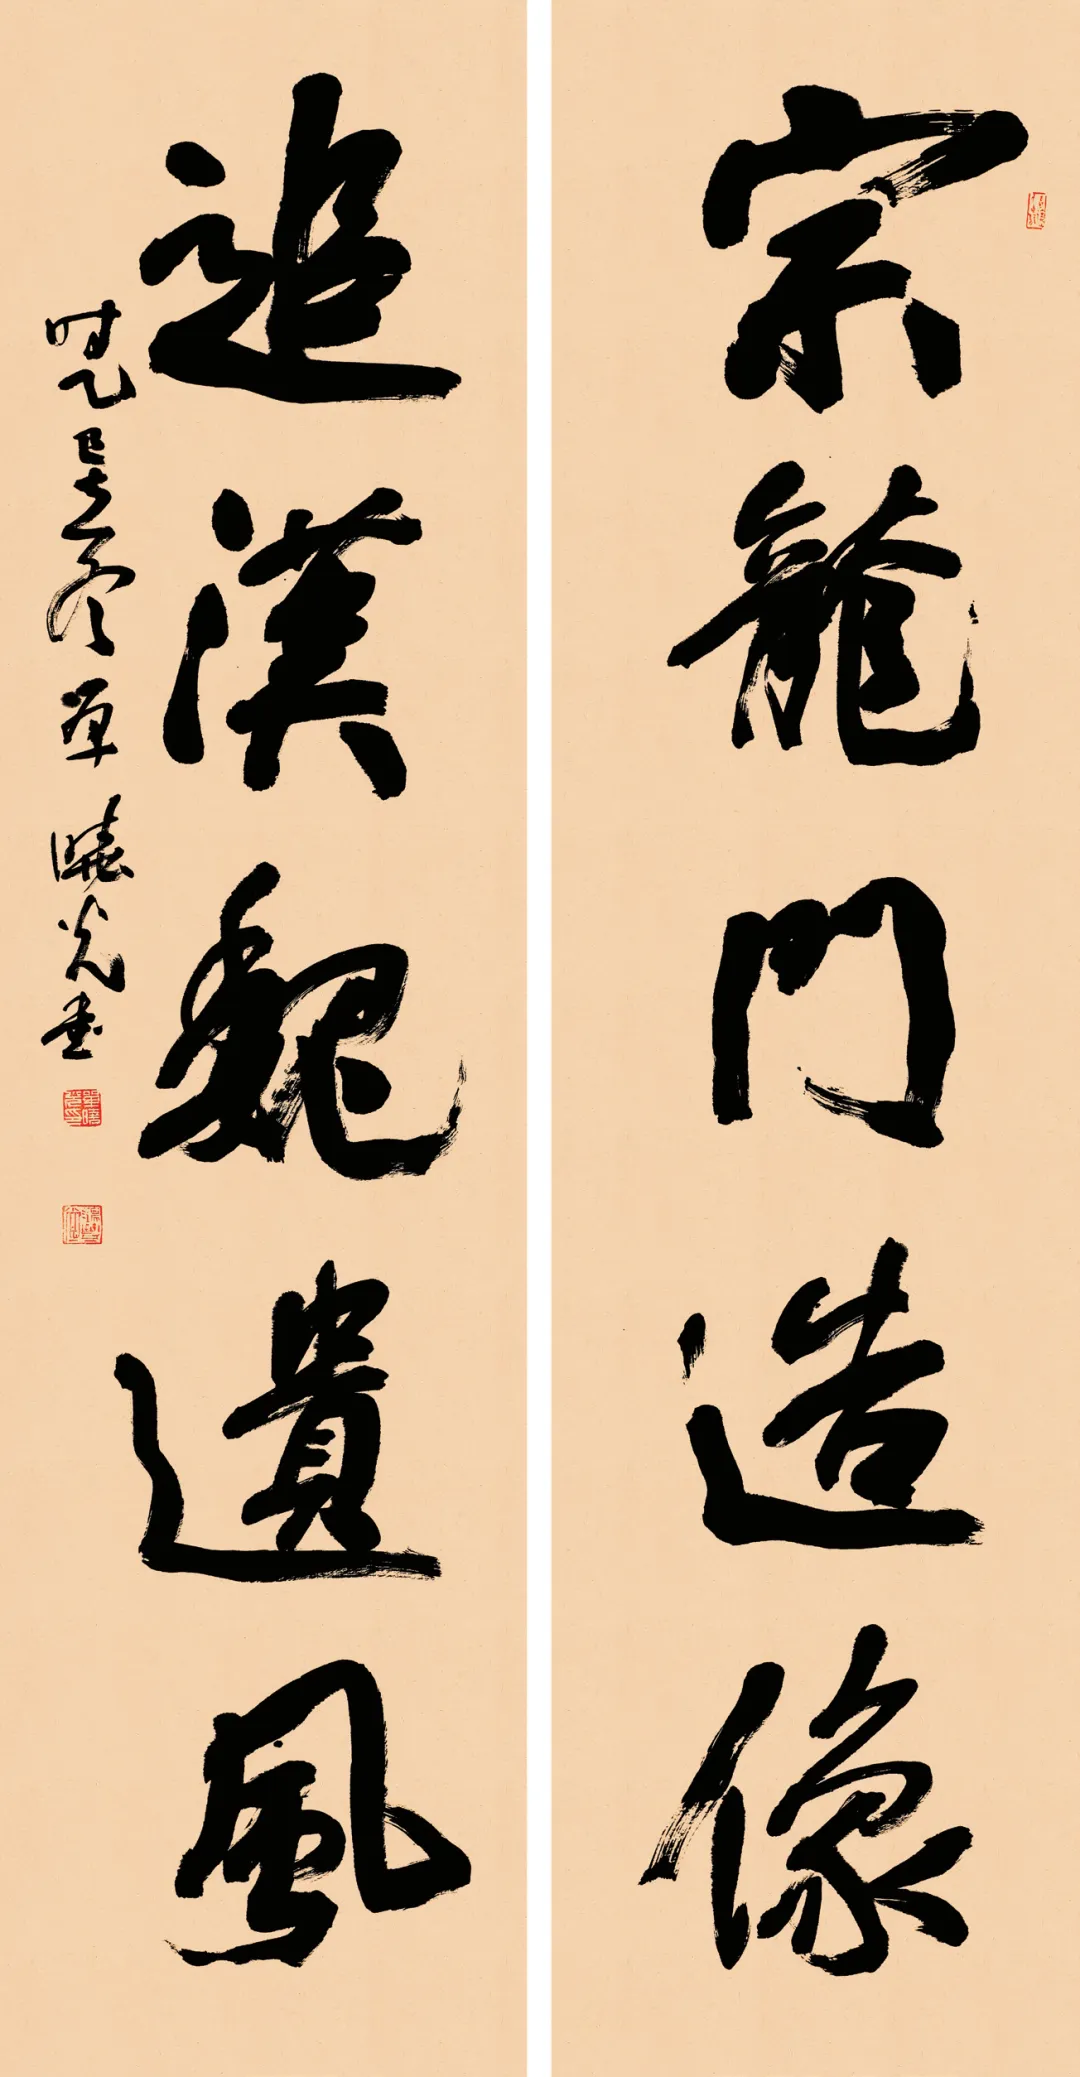 宗龍門造像
追漢魏遺風
時乙巳孟冬 草 曉光書